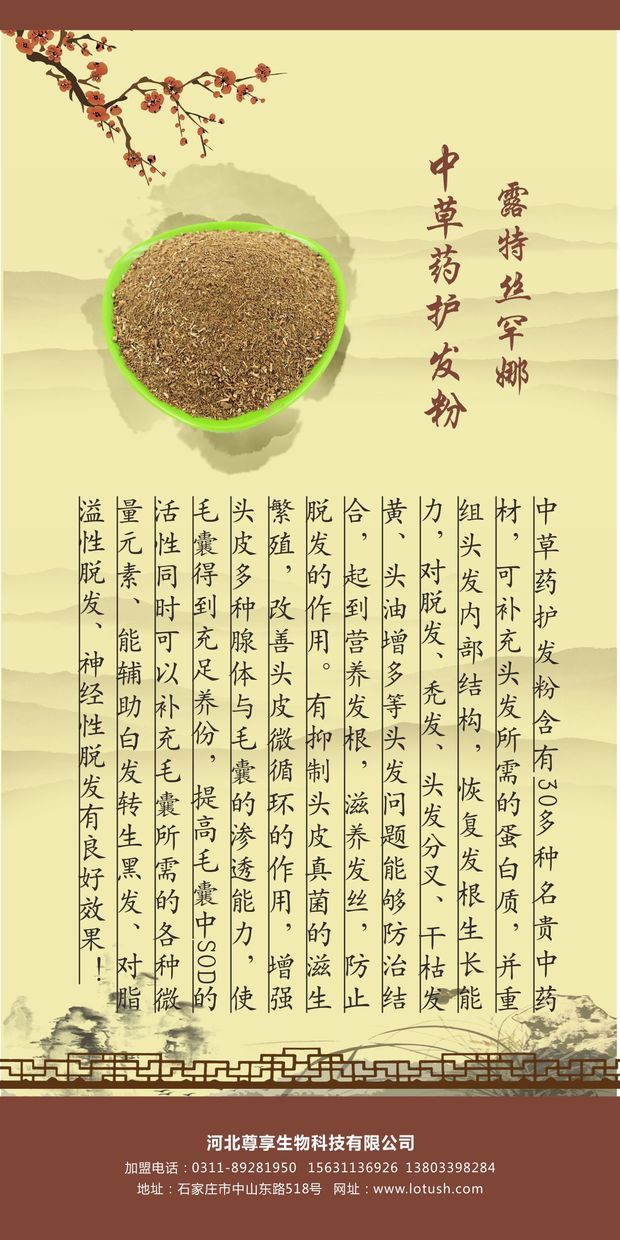 露特丝罕娜
中草药护发粉
中草药护发粉含有30多种名贵中药
材，可补充头发所需的蛋白质，并重
组头发内部结构，恢复发根生长能
力，对脱发、秃发、头发分叉、干枯发
黄、头油增多等头发问题能够防治结
合，起到营养发根，滋养发丝，防止
脱发的作用。有抑制头皮真菌的滋生
繁殖，改善头皮微循环的作用，增强
头皮多种腺体与毛囊的渗透能力，使
毛囊得到充足养份，提高毛囊中SOD的
活性同时可以补充毛囊所需的各种微
量元素、能辅助白发转生黑发、对脂
溢性脱发、神经性脱发有良好效果！
河北尊享生物科技有限公司
加盟电话：0311-89281950 15631136926 13803398284
地址：石家庄市中山东路518号 网址：www.lotush.com